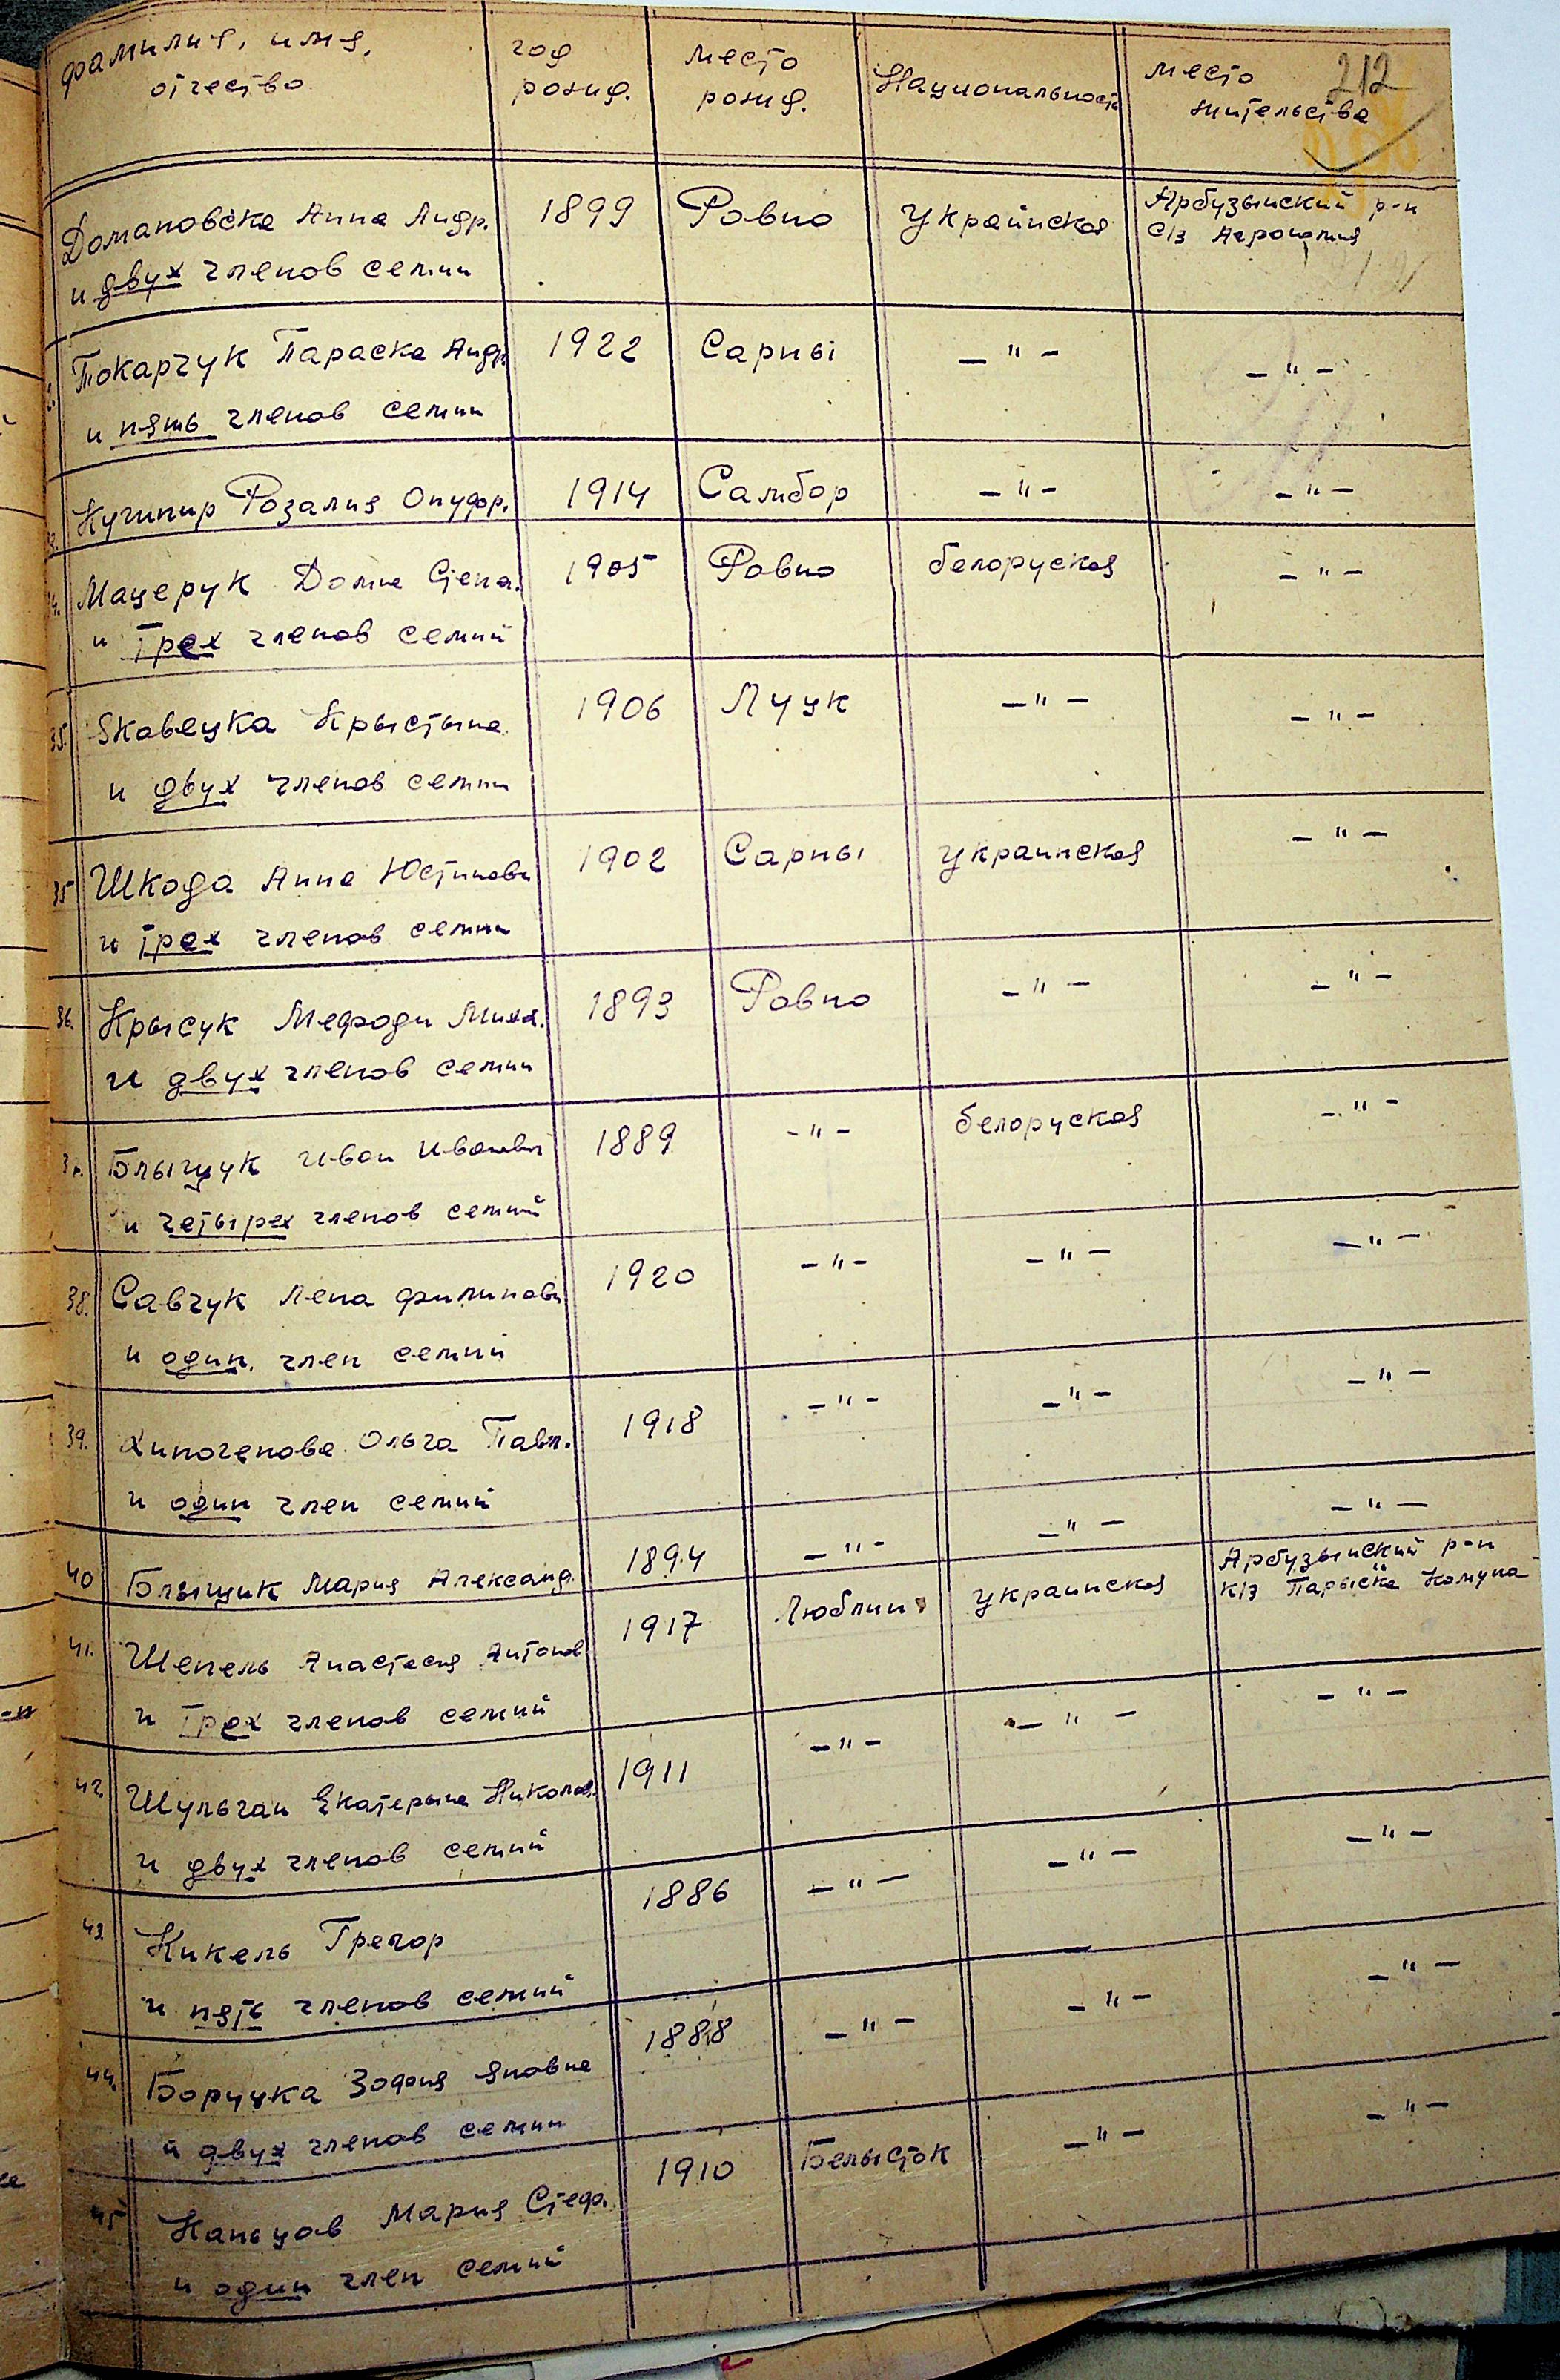 фамилия, имя,
отчество
год
рожд.
место
рожд.
Национальность
место
жительства
212
Домановска Анна Андр.
и двух членов семии
1899
Ровно
Украйнская
Арбузынский р-н
с/з Агрономия
Токарчук Параска Андр
и пять членов семии
1922
Сарны
— " —
— " —
Кучипир Розалия Онуфр.
1914
Самбор
— " —
— " —
Мацерук Домна Степа.
и трех членов семий
1905
Ровно
белоруская
— " —
35. Яковецка Крыстына
и двух членов семии
1906
Луцк
— " —
— " —
35 Шкода Анна Юстиновн
и трех членов семии
1902
Сарны
украинская
— " —
36. Крысук Мефоди Миха.
и двух членов семии
1893
Ровно
— " —
— " —
37. Блыщук Иван Иванович
и четырех членов семий
1889
— " —
белоруская
— " —
38. Савчук Лена филиповн
и один. член семий
1920
— " —
— " —
— " —
39. Хиноченова Ольга Павл.
и один член семий
1918
— " —
— " —
— " —
40 Блыщик Мария Александ.
1894
— " —
— " —
— " —
41. Шепель Анастасия Антонов
и трех членов семий
1917
Люблин
украинская
Арбузынский р-н
к/з Парыска Комуна
42. Шульган Екатерына Николаев.
и двух членов семий
1911
— " —
— " —
— " —
43. Кикель Грегор
и пять членов семий
1886
— " —
— " —
— " —
44. Боруцка Зофия Яновна
и двух членов семии
1888
— " —
— " —
— " —
45 Капыцов Мария Стеф.
и один член семий
1910
Белысток
— " —
— " —